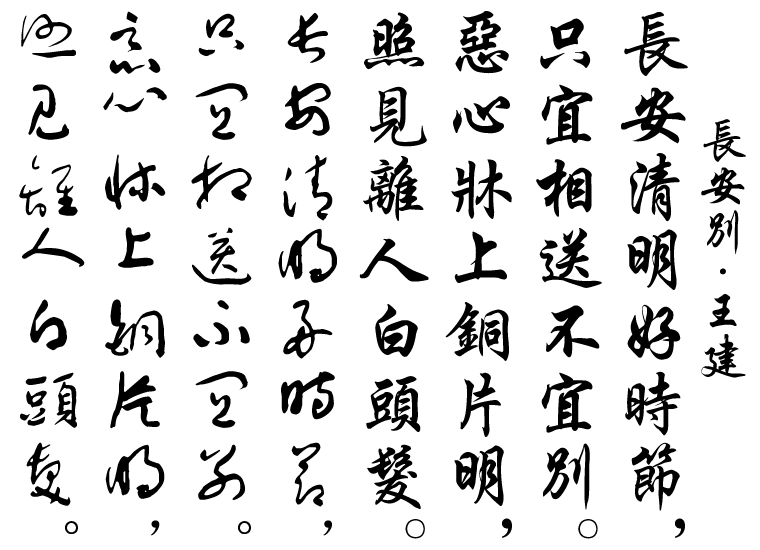 長安別·王建
長安清明好時節，
只宜相送不宜別。
惡心牀上銅片明，
照見離人白頭髮。
長安清明好時節，
只宜相送不宜別。
惡心牀上銅片明，
照見離人白頭髮。